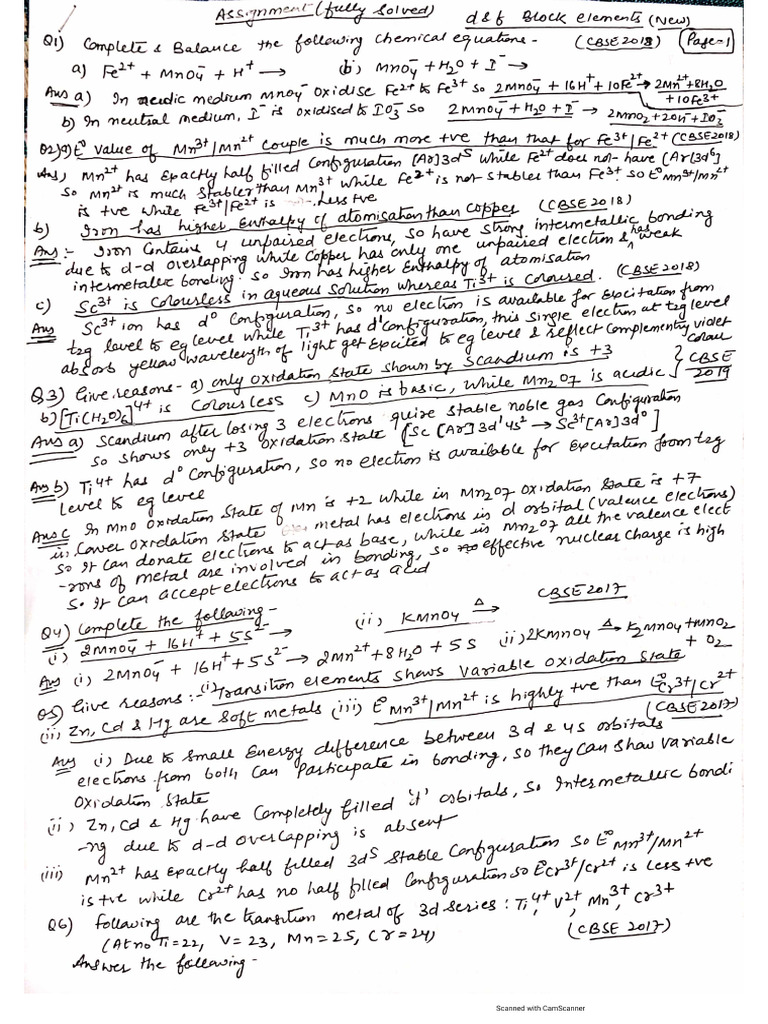 Assignment (fully Solved) d & f Block elements (New)
Q1) Complete & Balance the following Chemical equations - (CBSE 2018) Page-1
a) Fe²⁺ + MnO₄⁻ + H⁺ ⟶ (b) MnO₄⁻ + H₂O + I⁻ ⟶
Ans a) In acidic medium MnO₄⁻ oxidise Fe²⁺ to Fe³⁺ so 2MnO₄⁻ + 16H⁺ + 10Fe²⁺ → 2Mn²⁺ + 8H₂O + 10Fe³⁺
b) In neutral medium, I⁻ is oxidised to IO₃⁻ so 2MnO₄⁻ + H₂O + I⁻ → 2MnO₂ + 2OH⁻ + IO₃⁻
Q2) a) E° value of Mn³⁺/Mn²⁺ couple is much more +ve than that for Fe³⁺/Fe²⁺ (CBSE 2018)
Ans, Mn²⁺ has Exactly half filled Configuration [Ar]3d⁵ while Fe²⁺ does not have [Ar]3d⁶]
so Mn²⁺ is much stabler than Mn³⁺ while Fe²⁺ is not stabler than Fe³⁺. so E°Mn³⁺/Mn²⁺
is +ve while Fe³⁺/Fe²⁺ is Less +ve
b) Iron has higher Enthalpy of atomisation than Copper (CBSE 2018)
Ans :- Iron Contains 4 unpaired electrons, so have strong intermetallic bonding
due to d-d overlapping while Copper has only one unpaired electron & has weak
intermetallic bonding. so Iron has higher Enthalpy of atomisation
c) Sc³⁺ is Colourless in aqueous solution whereas Ti³⁺ is Coloured. (CBSE 2018)
Ans Sc³⁺ ion has d⁰ Configuration, so no electron is available for Excitation from
t2g level to eg level while Ti³⁺ has d¹ Configuration, this single electron at t2g level
absorb yellow wavelength of light get Excited to eg level & reflect Complementry violet colour
Q.3) Give reasons - a) only oxidation state shown by Scandium is +3
b) [Ti(H₂O)₆]⁴⁺ is Colourless c) MnO is basic, while Mn₂O₇ is acidic } CBSE 2019
Ans a) Scandium after losing 3 electrons quire stable noble gas Configuration
so shows only +3 oxidation state [Sc [Ar]3d¹4s² → Sc³⁺[Ar]3d⁰]
Ans b) Ti⁴⁺ has d⁰ Configuration, so no election is available for Excitation from t2g
level to eg level
Ans c In MnO oxidation State of Mn is +2 while in Mn₂O₇ oxidation State is +7
in Lower oxidation State metal has electrons in d orbital (valence electrons)
so it can donate electrons to act as base, while in Mn₂O₇ all the valence elect
-rons of metal are involved in bonding, so effective nuclear charge is high
so It can accept electrons to act as acid
Q4) Complete the following - CBSE 2017
(i) 2MnO₄⁻ + 16H⁺ + 5S²⁻ ⟶ (ii) KMnO₄ Δ⟶
Ans (i) 2MnO₄⁻ + 16H⁺ + 5S²⁻ → 2Mn²⁺ + 8H₂O + 5S (ii) 2KMnO₄ Δ→ K₂MnO₄ + MnO₂ + O₂
Q5) Give reasons :- (i) Transition elements shows Variable oxidation State
(ii) Zn, Cd & Hg are Soft metals (iii) E°Mn³⁺/Mn²⁺ is highly +ve than E°Cr³⁺/Cr²⁺
(CBSE 2017)
Ans (i) Due to Small Energy difference between 3d & 4s orbitals
electrons from both Can participate in bonding, so they Can show Variable
Oxidation State
(ii) Zn, Cd & Hg have Completely filled 'd' orbitals, so Intermetallic bondi
-ng due to d-d overlapping is absent
(iii) Mn²⁺ has Exactly half filled 3d⁵ Stable Configuration so E°Mn³⁺/Mn²⁺
is +ve while Cr²⁺ has no half filled Configuration so E°Cr³⁺/Cr²⁺ is Less +ve
Q6) Following are the transition metal of 3d series : Ti⁴⁺, V²⁺, Mn³⁺, Cr³⁺
(At no Ti = 22, V = 23, Mn = 25, Cr = 24) (CBSE 2017)
Answer the following -
Scanned with CamScanner